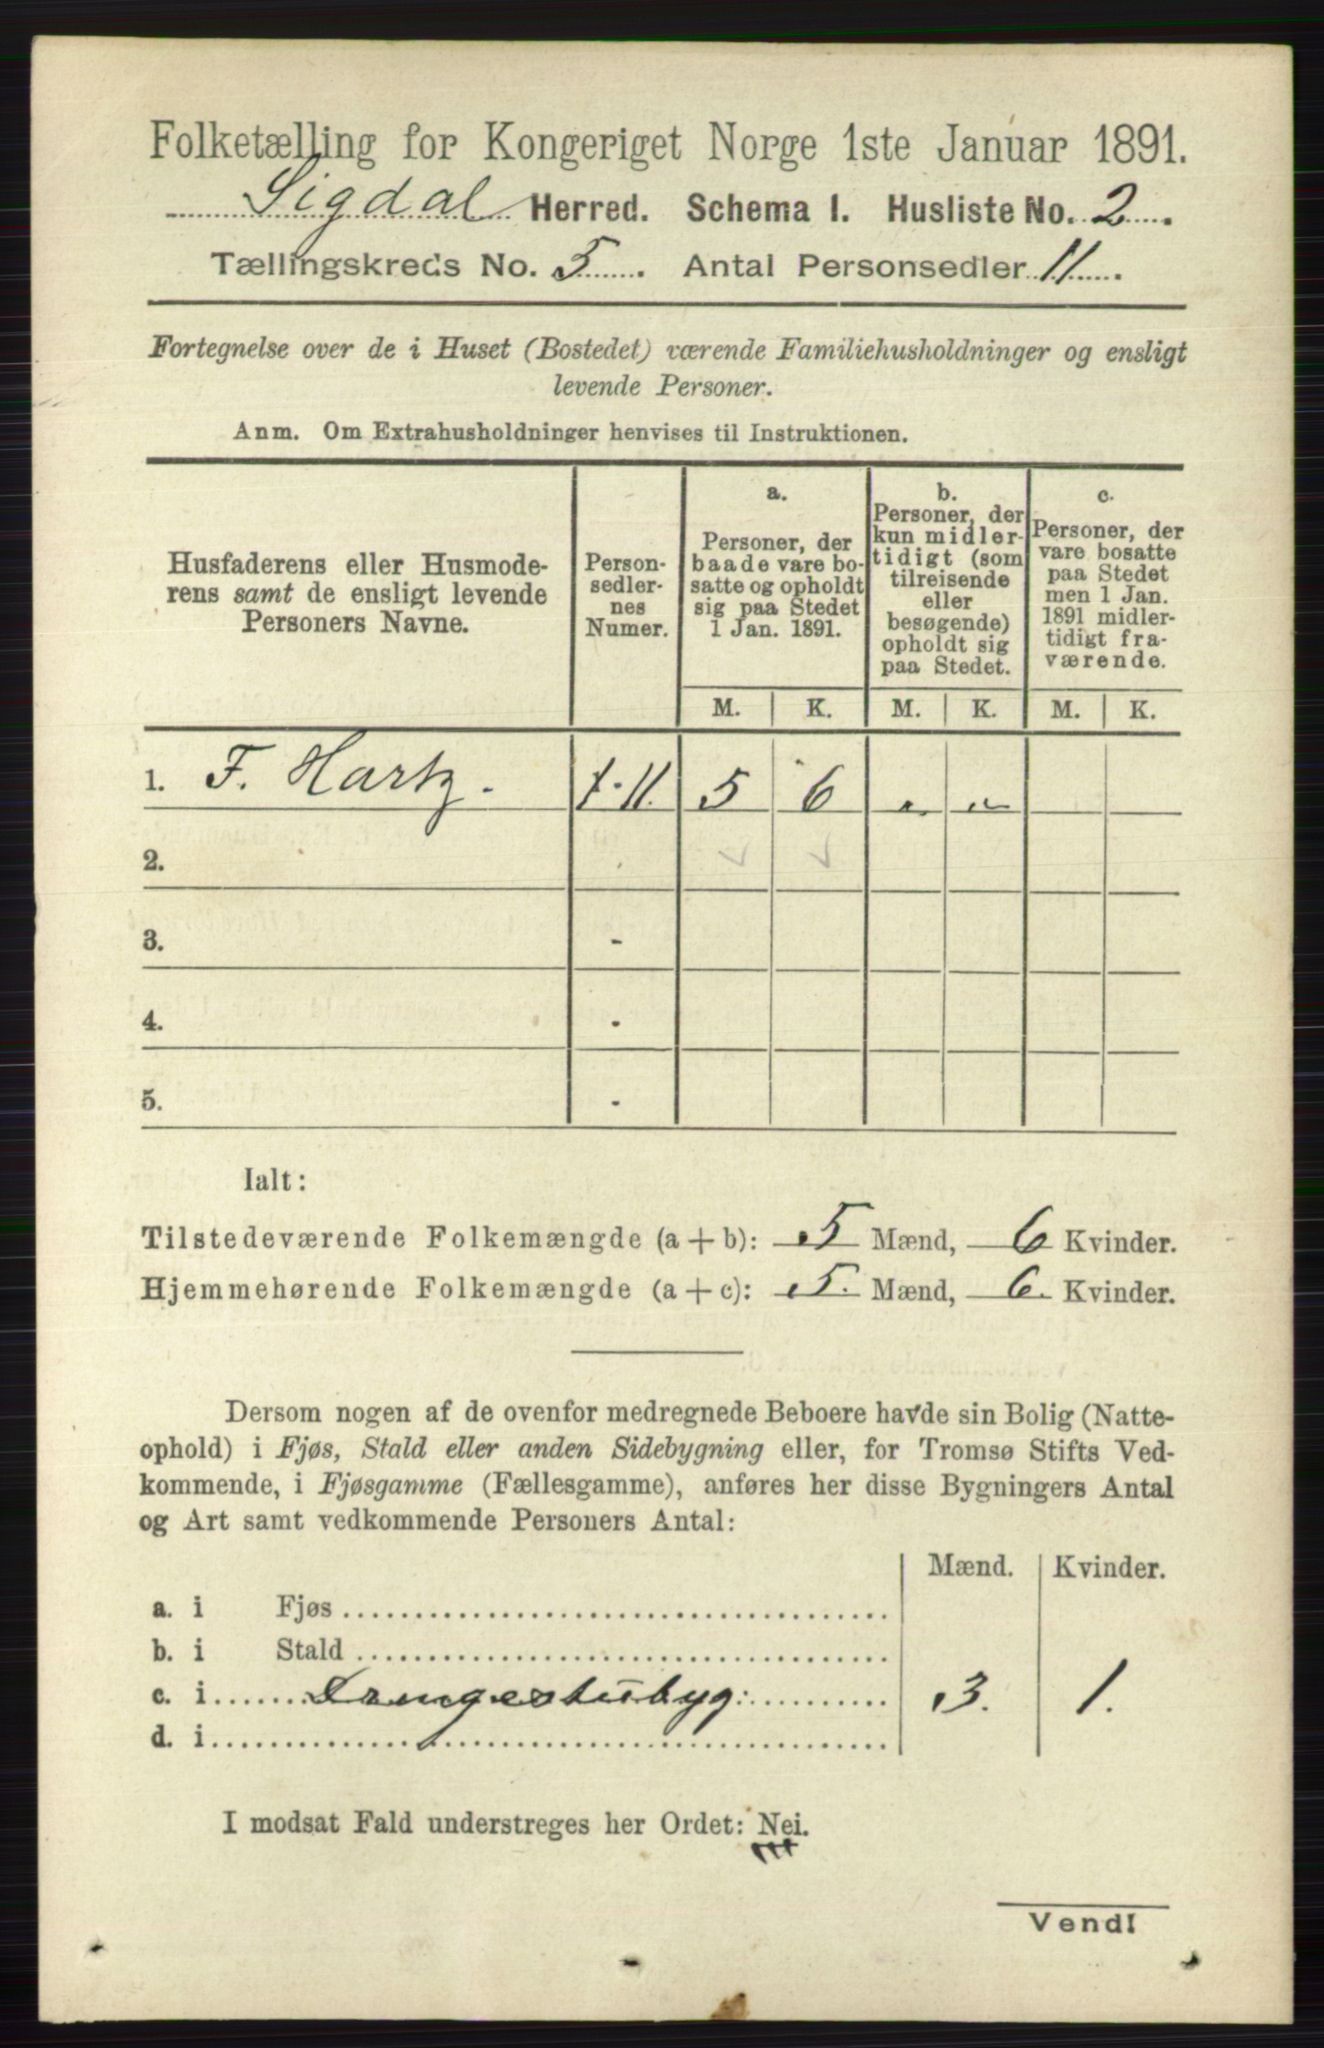 Folketælling for Kongeriget Norge 1ste Januar 1891.
Sigdal Herred. Schema 1. Husliste No. 2.
Tællingskreds No. 5. Antal Personsedler 11.
Fortegnelse over de i Huset (Bostedet) værende Familiehusholdninger og ensligt
levende Personer.
Anm. Om Extrahusholdninger henvises til Instruktionen.
Husfaderens eller Husmode-
rens samt de ensligt levende
Personers Navne.
Person-
sedler-
nes
Numer.
a.
Personer, der
baade vare bo-
satte og opholdt
sig paa Stedet
1 Jan. 1891.
b.
Personer, der
kun midler-
tidigt (som
tilreisende
eller
besøgende)
opholdt sig
paa Stedet.
c.
Personer, der
vare bosatte
paa Stedet
men 1 Jan.
1891 midler-
tidigt fra-
værende.
M. K. M. K. M. K.
1. F. Hartz. 1-11. 5 6 „ „
2.
3. -
4. -
5. -
Ialt:
Tilstedeværende Folkemængde (a + b): 5 Mænd, 6 Kvinder.
Hjemmehørende Folkemængde (a + c): 5. Mænd, 6. Kvinder.
Dersom nogen af de ovenfor medregnede Beboere havde sin Bolig (Natte-
ophold) i Fjøs, Stald eller anden Sidebygning eller, for Tromsø Stifts Ved-
kommende, i Fjøsgamme (Fællesgamme), anføres her disse Bygningers Antal
og Art samt vedkommende Personers Antal:
Mænd. Kvinder.
a. i Fjøs
b. i Stald
c. i Drengestubyg: 3. 1.
d. i
I modsat Fald understreges her Ordet: Nei.
Vend!